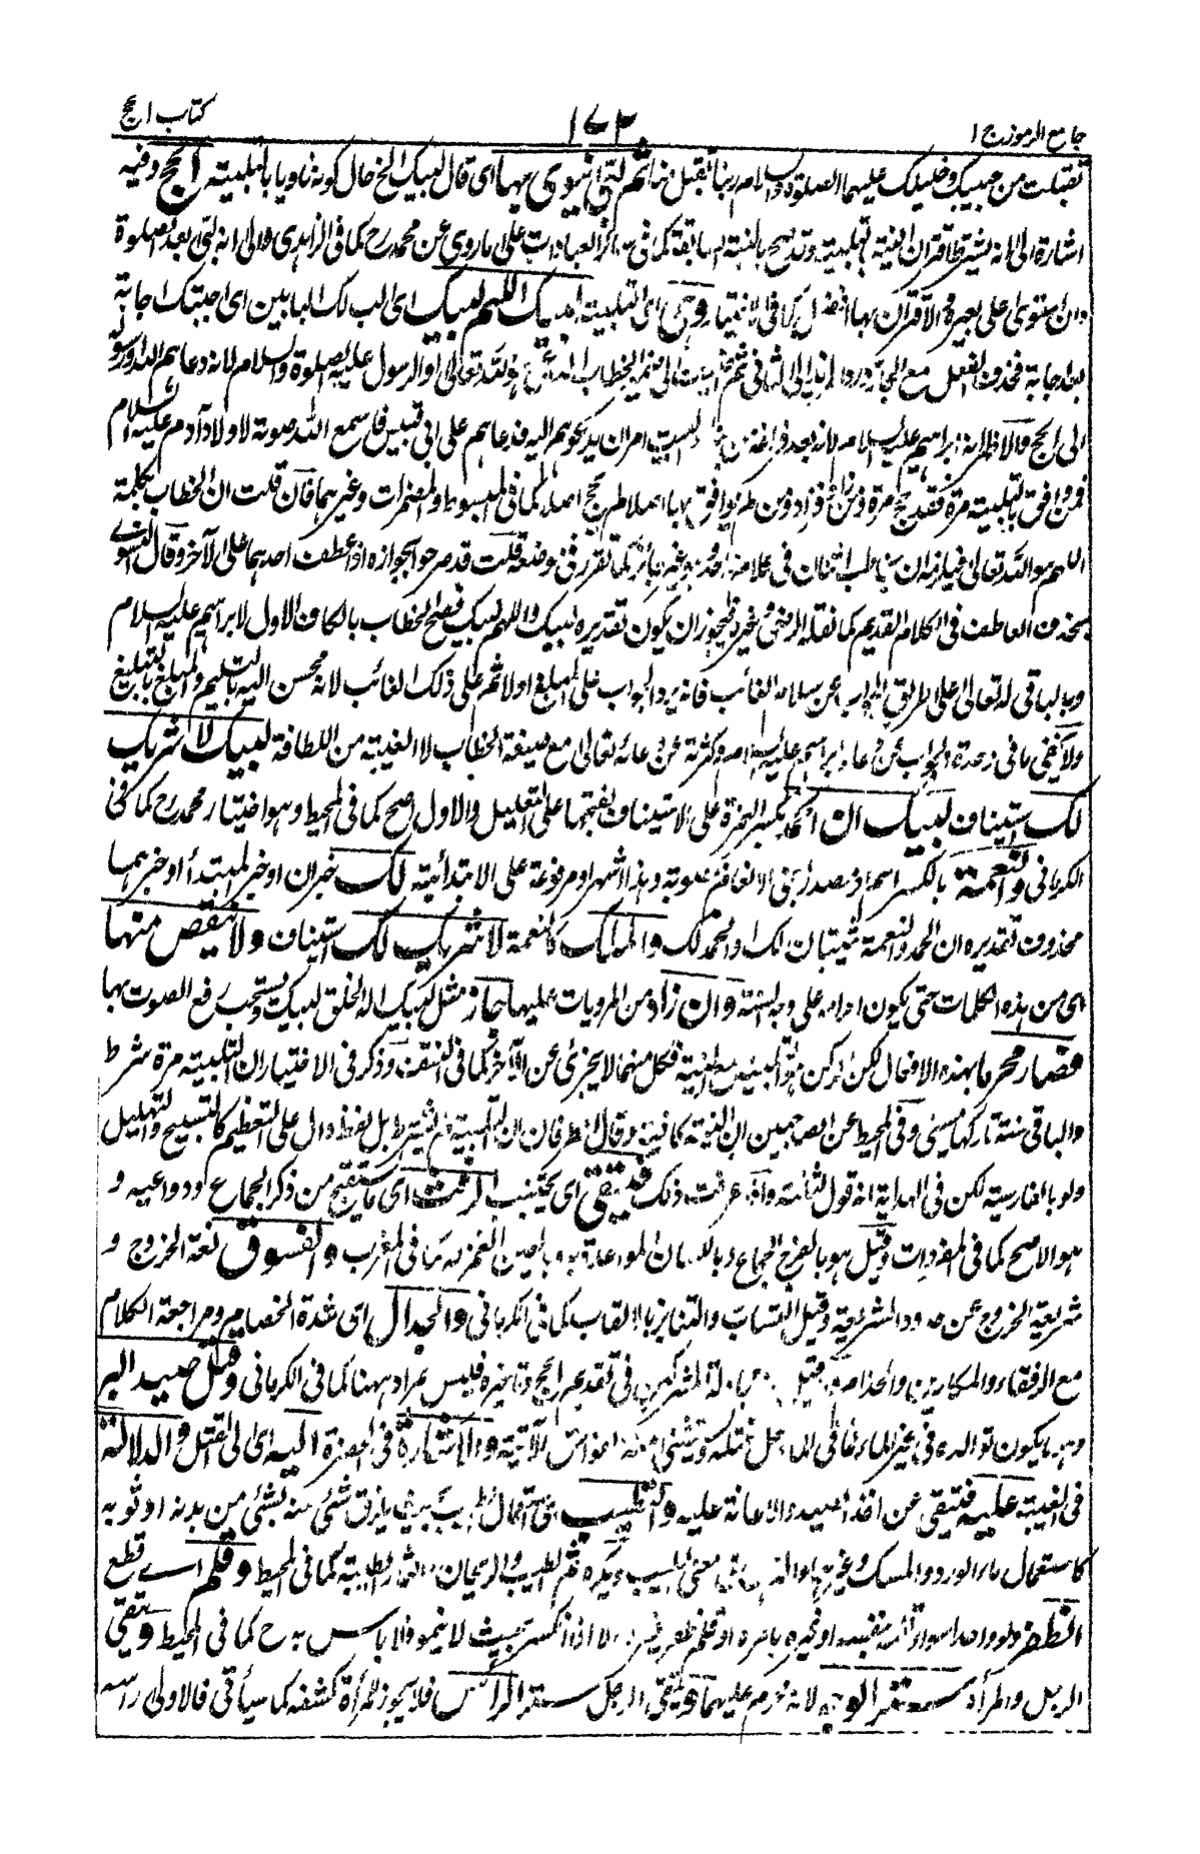 جامع الرموز ج ١
١٧٣
كتاب الحج
تقبلت من حبيبك وخليلك عليهما الصلوة والسلام ربنا تقبل منا ثم لبى ينوى بها اى قال لبيك الخ حال كونه ناويا بالتلبية الحج وفيه
اشارة الى انه يشترط اقتران النية بالتلبية وقد يصح بالنية السابقة كما فى سائر العبادات على ما روى عن محمد رح كما فى الزاهدى والى انه لبى بعد الصلوة
وان استوى على بعيره والاقتران بها افضل كما فى الاختيار وهى اى التلبية لبيك اللهم لبيك اى الب لك البابين اى اجبتك اجابة
بعد اجابة فحذف الفعل مع الجار ورد المزيد الى الثلاثى ثم الى ضمير الخطاب لله تعالى او الرسول عليه الصلوة والسلام لانه دعاهم الله ورسوله
الى الحج والاظهر انه ابراهيم عليه السلام لانه بعد فراغه من البيت امر ان يدعوهم اليه فدعاهم على ابى قبيس فاسمع الله صوته لاولاد آدم عليه السلام
فمن وافق بالتلبية مرة فقد يحج مرة ومن زاد فزاد ومن لم يوافق بها اصلا لم يحج اصلا كما فى المبسوط والمضمرات وغيرهما فان قلت ان الخطاب بكلمة
اللهم هو الله تعالى فيلزم ان يخاطب اثنان فى كلام واحد وغير جائز كما تقرر فى موضعه قلت قد صرحوا بجوازه اذا عطف احدهما على الآخر وقال
بحذف العاطف فى الكلام القديم كما نقله الرضى وغيره فيجوز ان يكون تقديره لبيك واللهم لبيك فيصح الخطاب بالكاف الاول لابراهيم عليه السلام
وبالباقى له تعالى على طريق الجواب عن سلام الغائب فانه يرد الجواب على المبلغ اولا ثم على ذلك الغائب لانه محسن اليه بالتسليم والمبلغ بالتبليغ
ولا يخفى ما فى وحدة الجواب عن دعاء ابراهيم عليه السلام وكثرته عن دعائه تعالى مع صيغة الخطاب لا الغيبة من اللطافة لبيك لا شريك
لك استيناف لبيك ان الحمد بكسر الهمزة على الاستيناف وبفتحها على التعليل والاول اصح كما فى المحيط وهو اختيار محمد رح كما فى
الكرمانى والنعمة بالكسر اسم او مصدر بمعنى الانعام منصوبة وهذا اشهر او مرفوعة على الابتدائية لك خبر ان او خبر المبتدأ او خبرهما
محذوف تقديره ان الحمد والنعمة ثبتتان لك او الحمد لك والملك كالنعمة لا شريك لك استيناف ولا ينقص منها
اى من هذه الكلمات حتى يكون اداءه على وجه السنة وان زاد من المرويات عليها جاز مثل لبيك اله الخلق لبيك ويستحب رفع الصوت بها
فصار محرما بهذه الافعال لكن الركن هو التلبية مع النية فكل منهما لا يجزئ عن الآخر كما فى النتف وذكر فى الاختيار ان التلبية مرة شرط
والباقى سنة تاركها مسئ وفى المحيط عن الصاحبين ان النية كافية وقال الطرفان ان التلبية لم يشترط بل لفظ دال على التعظيم كالتسبيح والتهليل
ولو بالفارسية لكن فى الهداية انه قول الثلثة واذ عرفت ذلك فيتقى اى يجتنب الرفث اى ما يستقبح من ذكر الجماع ودواعيه و
هو الاصح كما فى المفردات وقيل هو بالفرج الجماع وباللسان المواعدة به وبالعين الغمز له كما فى المغرب والفسوق لغة الخروج و
شريعة الخروج عن حدود الشريعة وقيل السباب والتنابز بالالقاب كما فى الكرمانى والجدال اى شدة الخصام ومراجعة الكلام
مع الرفقاء والمكاريين والخدام وقيل مجادلة المشركين فى تقديم الحج وتاخيره فليس بمراد ههنا كما فى الكرمانى وقتل صيد البر
وهو ما يكون توالده فى غير الماء فما فى الماء حل قتله ويستثنى منه الفواسق الآتية والاشارة فى الحضرة اليه اى الى القتل والدلالة
فى الغيبة عليه فيتقى عن اخذ الصيد والاعانة عليه والتطيب اى استعمال طيب بحيث يلزق شئ منه بشئ من بدنه او ثوبه
كاستعمال ماء الورد والمسك وغيرهما معنى الطيب ويكره شم الطيب والريحان والثمار الطيبة كما فى المحيط وقلم اے قطع
الظفر ولو واحدا سواء قلمه بنفسه او غيره بامره او قلم ظفر غيره الا اذا انكسر بحيث لا ينمو فلا باس به ح كما فى المحيط ويتقى
الرجل والمرأة ستر الوجه لانه محرم عليهما ويتقى الرجل ستر الرأس فلا يجوز للمرأة كشفه كما سيأتى فالاولى راسه